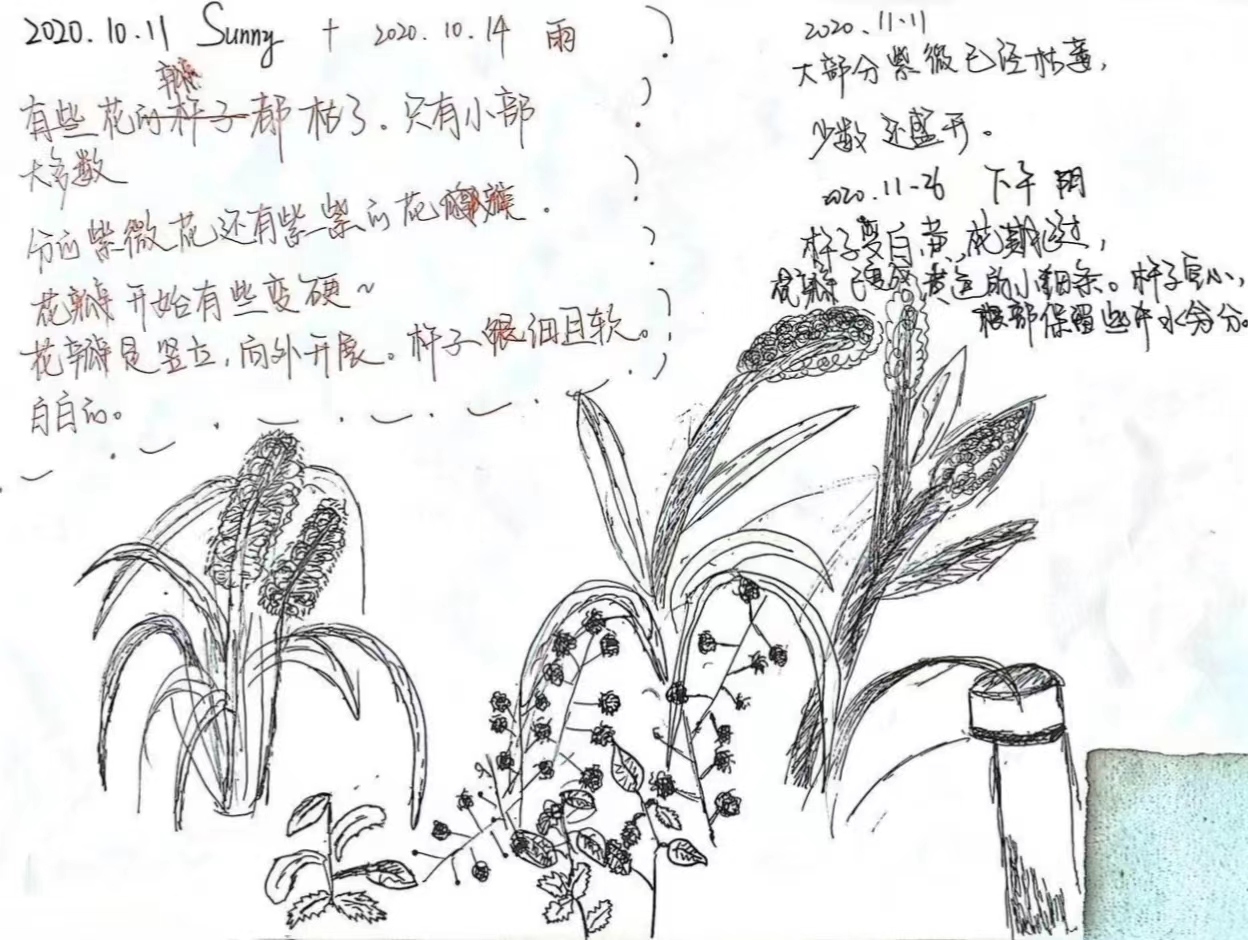 2020.10.11 Sunny + 2020.10.14 雨
瓣
有些花的杆子都枯了。只有小部
大多数
分的紫微花还有紫紫的花瓣.
花瓣开始有些变硬~
花瓣是竖立,向外开展。杆子很细且软。
白白的。
2020.11.11
大部分紫微已经枯萎,
少数还盛开。
2020.11.26 下午 阴
杆子变白黄,花期已过,
花瓣已变成黄色的小细条。杆子更小,
根部保留些许水分。